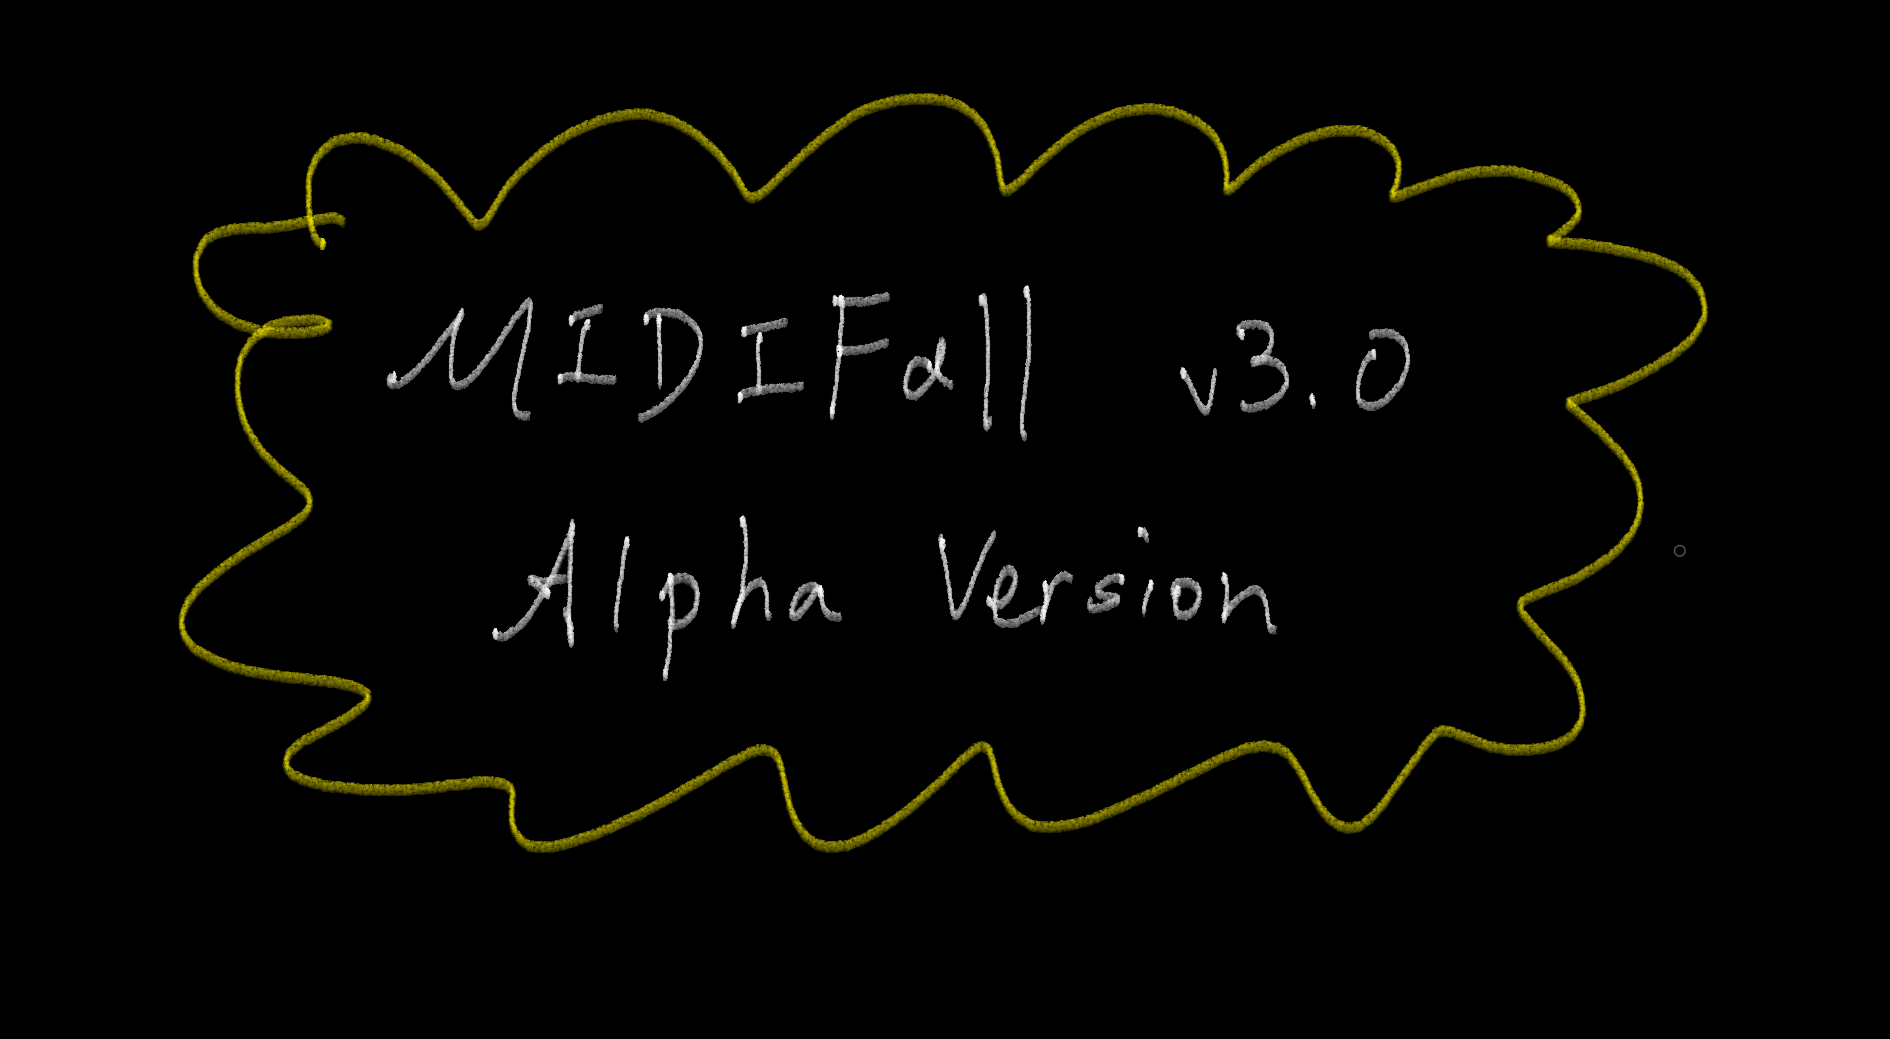 MIDIFall v3.0
Alpha Version